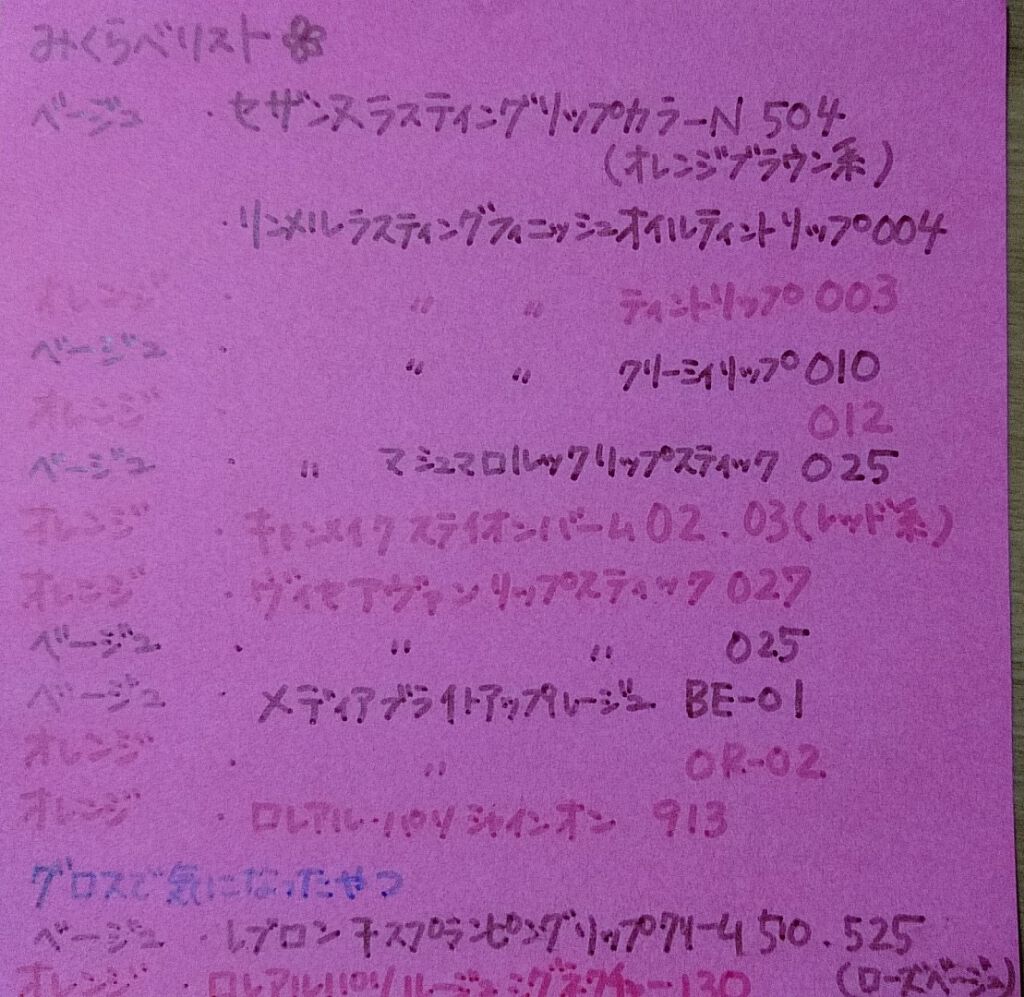 みくらべリスト
ベージュ ・セザンヌラスティングリップカラーN 504
(オレンジブラウン系)
・リンメルラスティングフィニッシュオイルティントリップ004
オレンジ ・ 〃 〃 ティントリップ003
ベージュ ・ 〃 〃 クリーミィリップ010
オレンジ 012
ベージュ ・ 〃 マシュマロルックリップスティック 025
オレンジ ・キャンメイクステイオンバーム02.03(レッド系)
オレンジ ・ヴィセアヴァンリップスティック027
ベージュ ・ 〃 〃 025
ベージュ ・メディアブライトアップルージュ BE-01
オレンジ ・ 〃 OR-02
オレンジ ・ロレアル・パリシャインオン 913
グロスで気になったやつ
ベージュ ・レブロンキスプランピングリップクリーム510.525
(ローズベージュ)
オレンジ ・ロレアルパリルージュ 130